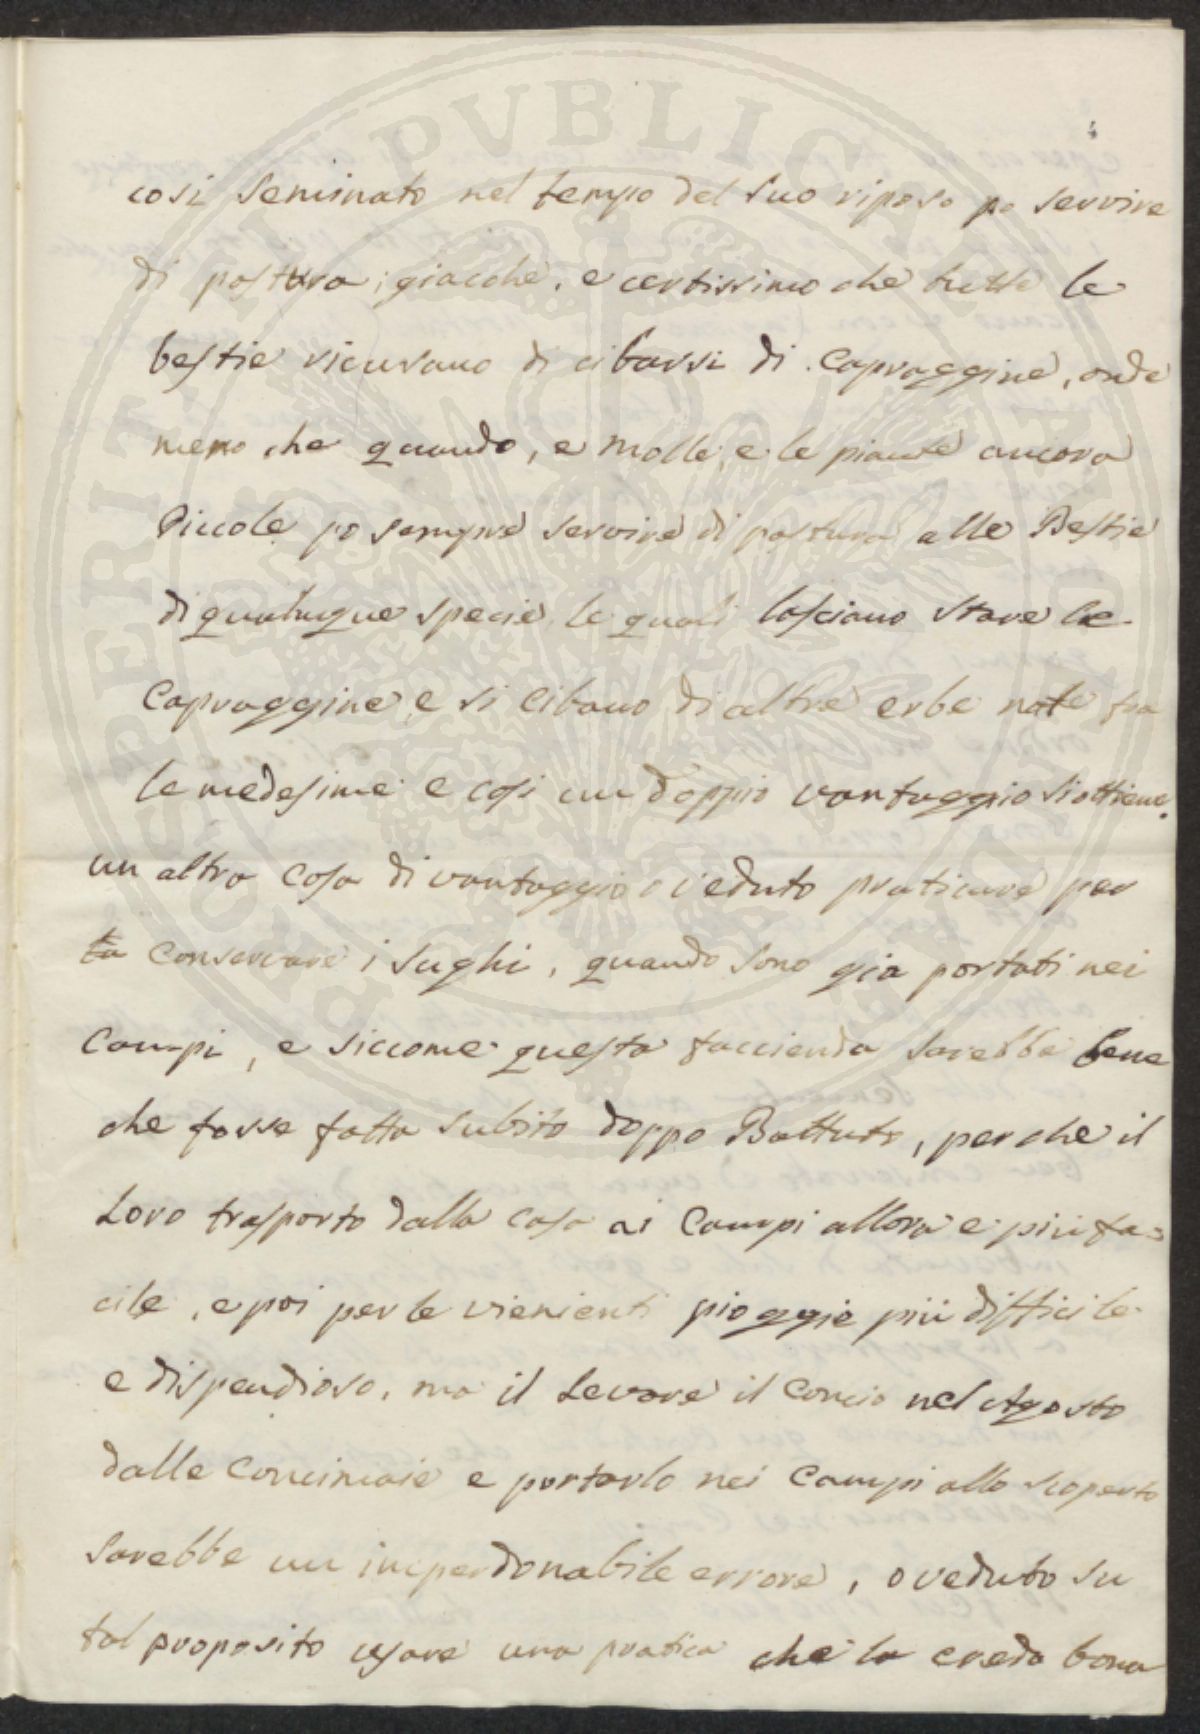 cosi seminato nel tempo del suo riposo po servire
di pastura; giacche, e certissimo che tutte le
bestie ricusano di cibarsi di Capraggine, onde
meno che quando, e molle, e le piante ancora
Piccole po sempre servire di pastura alle Bestie
di qualuque specie, le quali lasciano stare le
Capraggine, e si cibano di altre erbe nate fra
le medesime e cosi un doppio vantaggio si ottiene.
un altra cosa di vantaggio o veduto praticare per
conservare i sughi, quando sono gia portati nei
Campi, e siccome questa faccienda sarebbe bene
che fosse fatta subito doppo Battuto, perche il
Loro trasporto dalla casa ai Campi allora e piu fa=
cile, e poi per le vienienti pioggie più difficile
e dispendioso, ma il Levare il concio nel Agosto
dalle Concimaie e portarlo nei Campi allo scoperto
sarebbe un inperdonabile errore, o veduto su
tal proposito usare una pratica che la credo bona
PERIT PUBLICAE